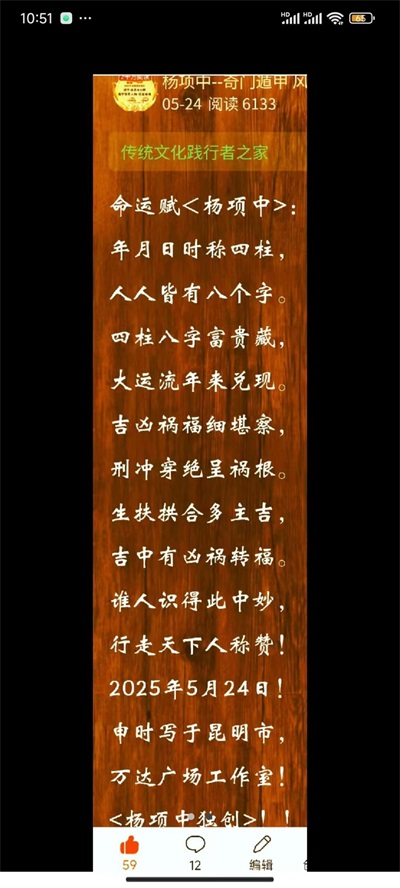 10:51
杨项中--奇门遁甲 风
05-24 阅读 6133
传统文化践行者之家
命运赋<杨项中>:
年月日时称四柱,
人人皆有八个字。
四柱八字富贵藏,
大运流年来兑现。
吉凶祸福细堪察,
刑冲穿绝呈祸根。
生扶拱合多主吉,
吉中有凶祸转福。
谁人识得此中妙,
行走天下人称赞!
2025年5月24日!
申时写于昆明市,
万达广场工作室!
<杨项中独创>!!
59
12
编辑